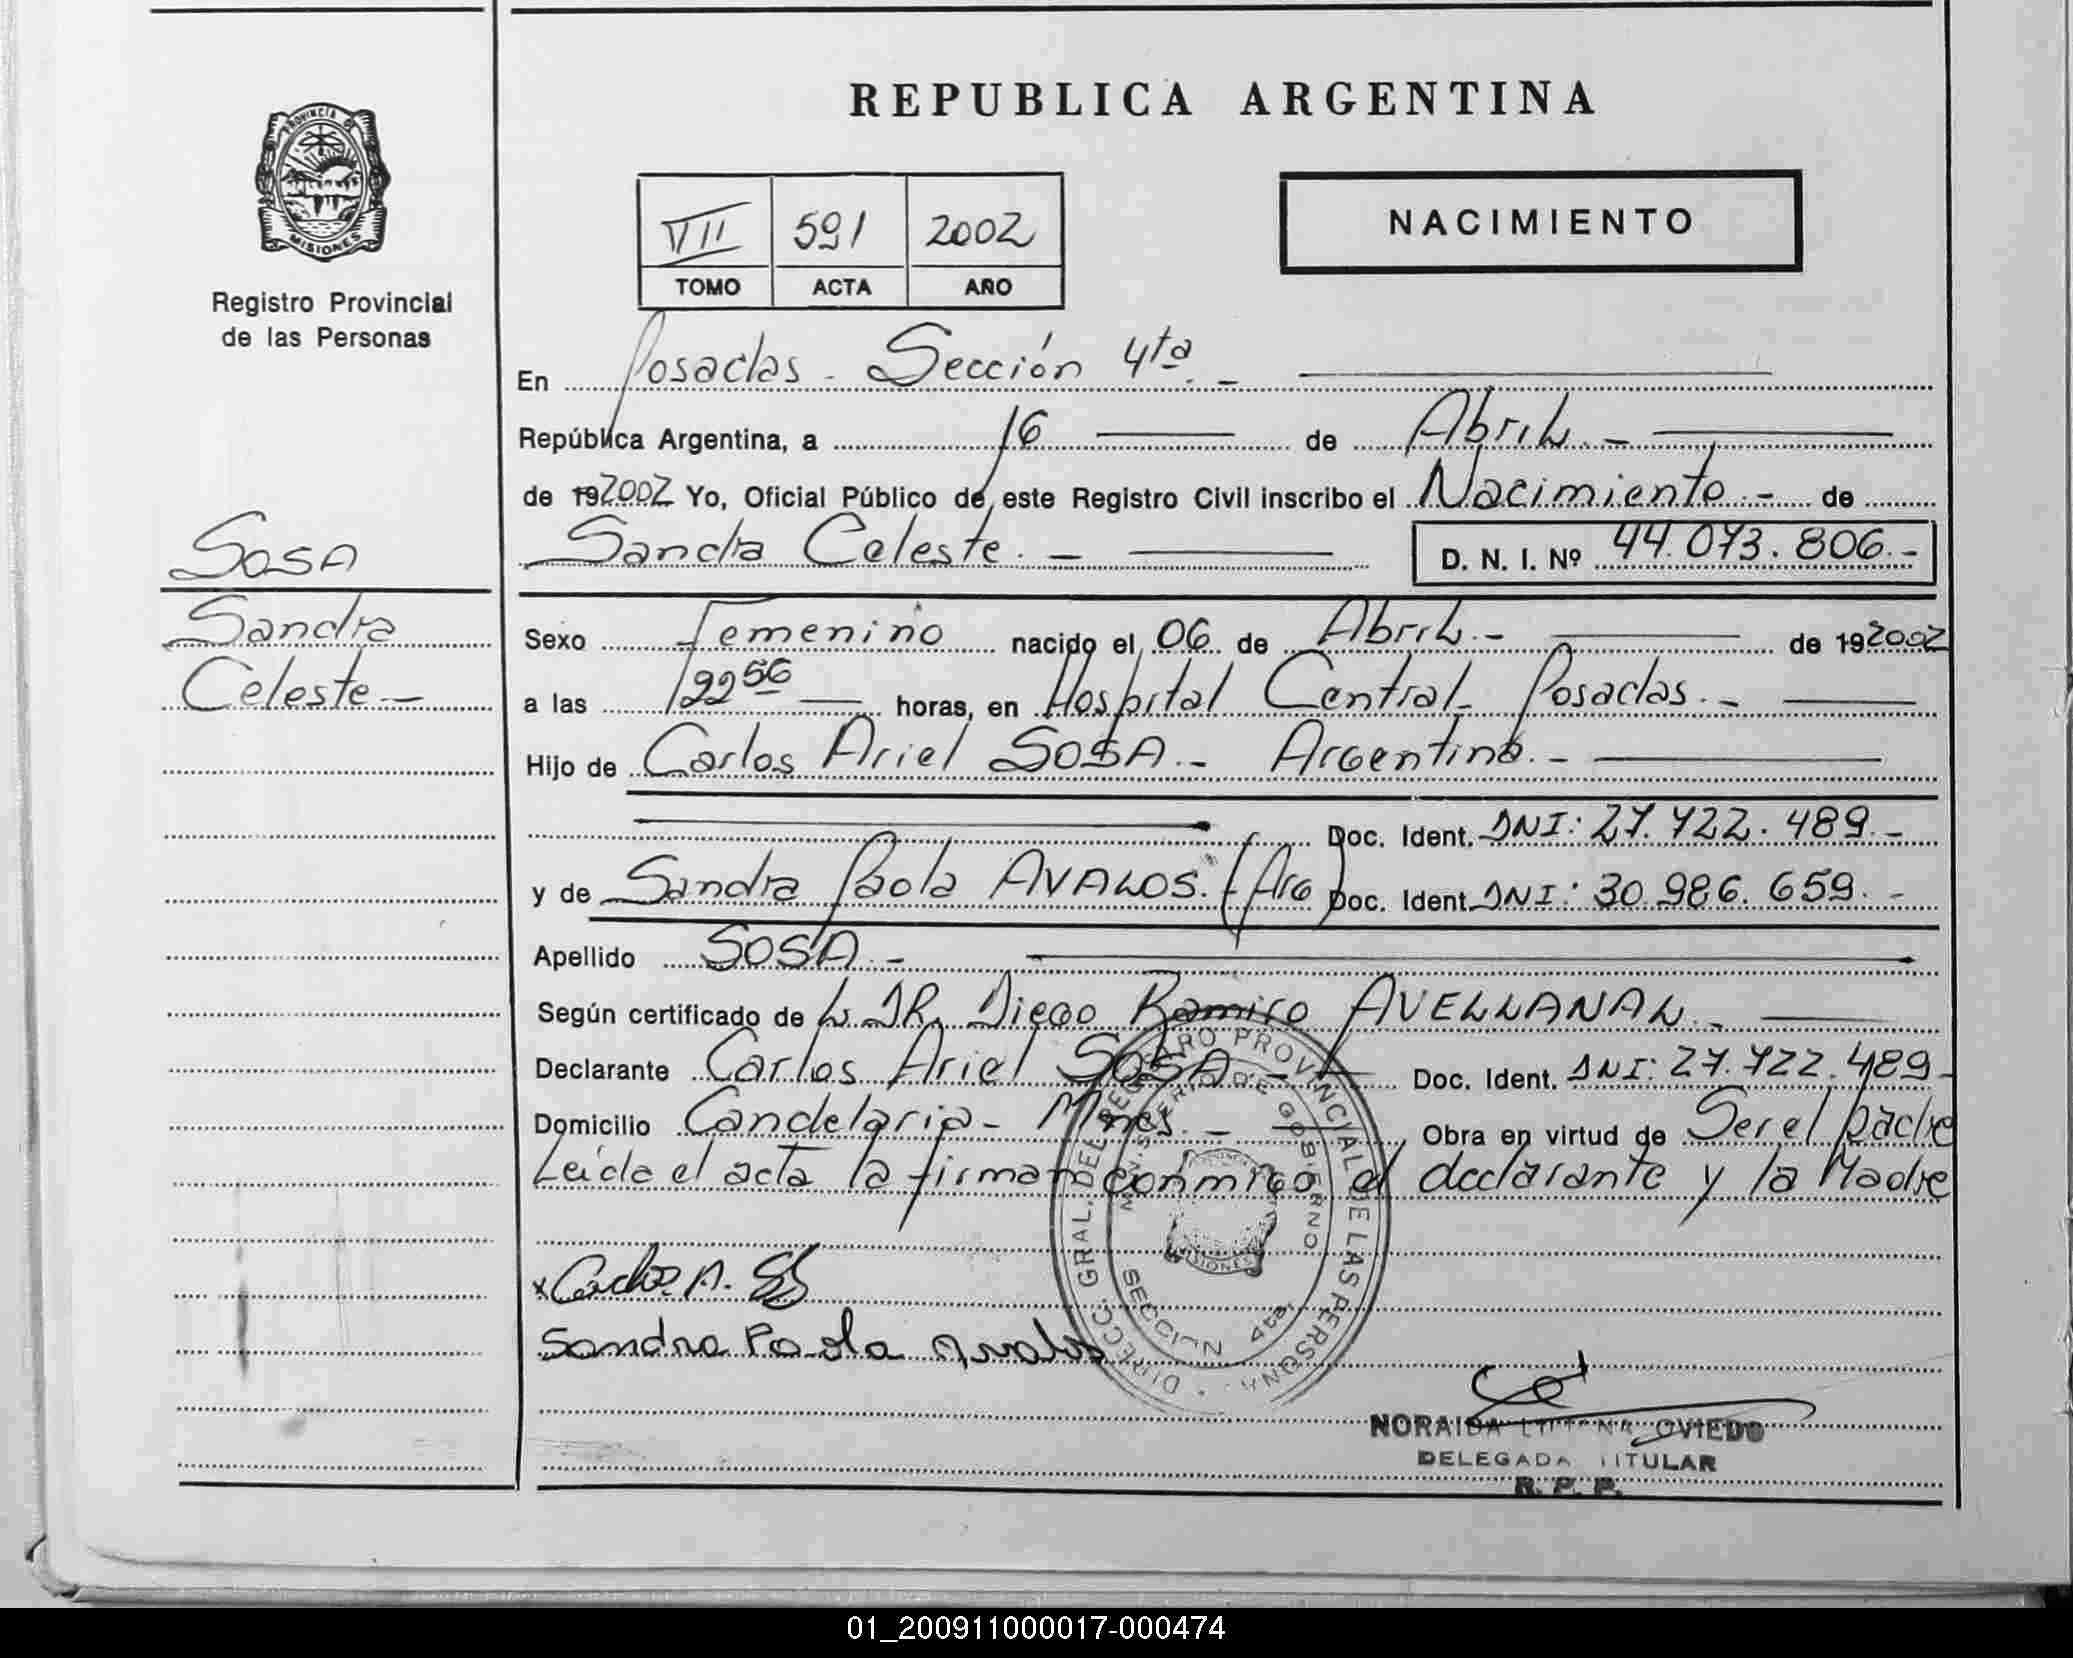 REPUBLICA ARGENTINA
PROVINCIA DE
MISIONES
Registro Provincial
de las Personas
VII 591 2002
TOMO ACTA AÑO
NACIMIENTO
En Posadas - Sección 4ta. -
República Argentina, a 16 de Abril. -
de 192002 Yo, Oficial Público de este Registro Civil inscribo el Nacimiento. - de
Sandra Celeste. - D. N. I. Nº 44.073.806.-
SOSA
Sandra
Celeste -
Sexo Femenino nacido el 06 de Abril. - de 192002
a las 22 56 horas, en Hospital Central Posadas. -
Hijo de Carlos Ariel SOSA. - Argentino. -
Doc. Ident. DNI: 27.722.489. -
y de Sandra Paola AVALOS. (Arg) Doc. Ident. DNI: 30.986.659. -
Apellido SOSA. -
Según certificado de L. DR. Diego Ramiro AVELLANAL. -
Declarante Carlos Ariel SOSA - Doc. Ident. DNI: 27.722.489 -
Domicilio Candelaria - Mnes. - Obra en virtud de Ser el padre
Leída el acta la firman conmigo el declarante y la Madre
Carlos A.
Sandra Paola Avalos
DIRECC. GRAL. DEL REGISTRO PROVINCIAL DE LAS PERSONAS
MINISTERIO DE GOBIERNO
SECCION 4ta.
MISIONES
NORAIDA OVIEDO
DELEGADA TITULAR
R. P. P.
01_200911000017-000474